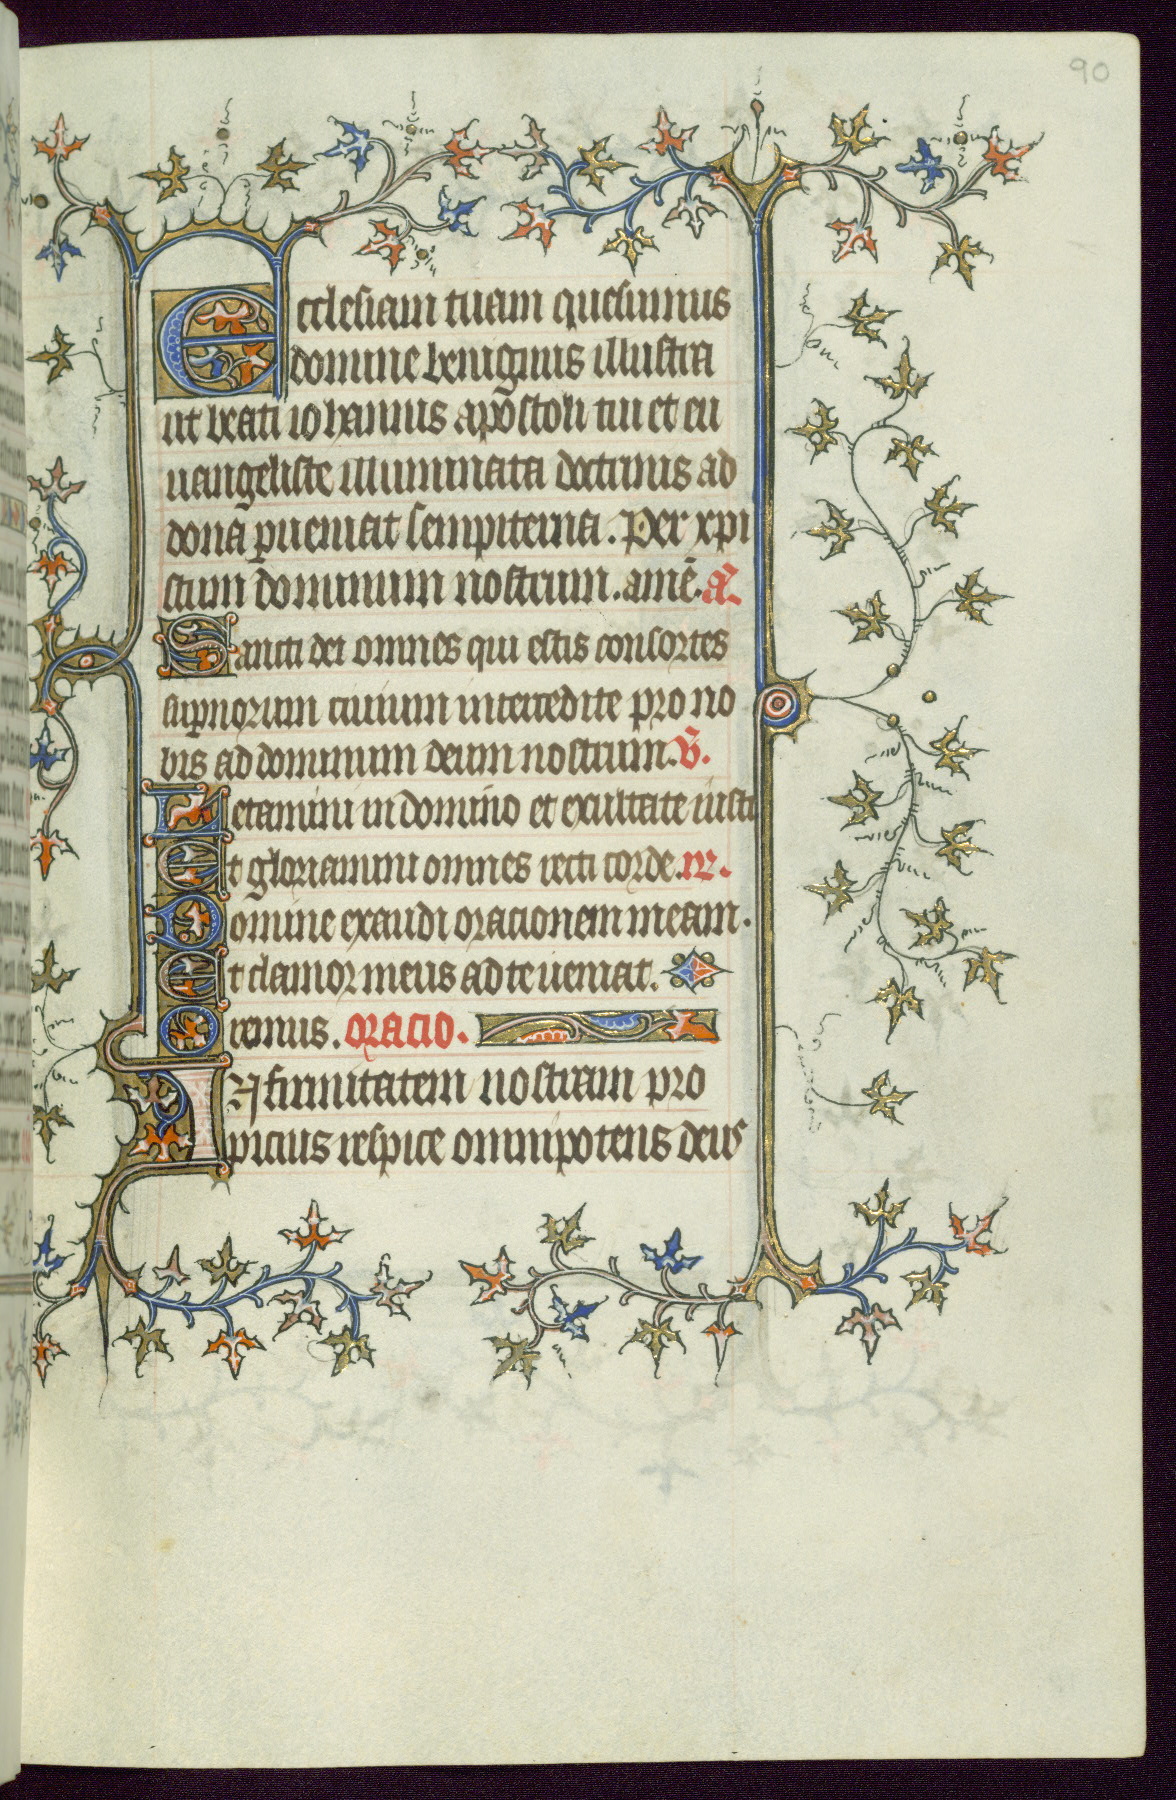 90
Ecclesiam tuam quesumus
domine benignus illustra
ut beati iohannis apōstoli tui et eu
uangeliste illuminata doctrinis ad
dona ꝑueniat sempiterna. Per xpi
stum dominum nostrum. amē. añ
Sancti dei omnes qui estis consortes
suꝑnorum ciuium intercedite pro no
bis ad dominum deum nostrum. v̄.
Letamini in domino et exultate iusti
Et gloriamini omnes recti corde. rr.
Domine exaudi oracionem meam.
Et clamor meus ad te ueniat.
Oremus. Oracio.
INfirmitatem nostram pro
picius respice omnipotens deus